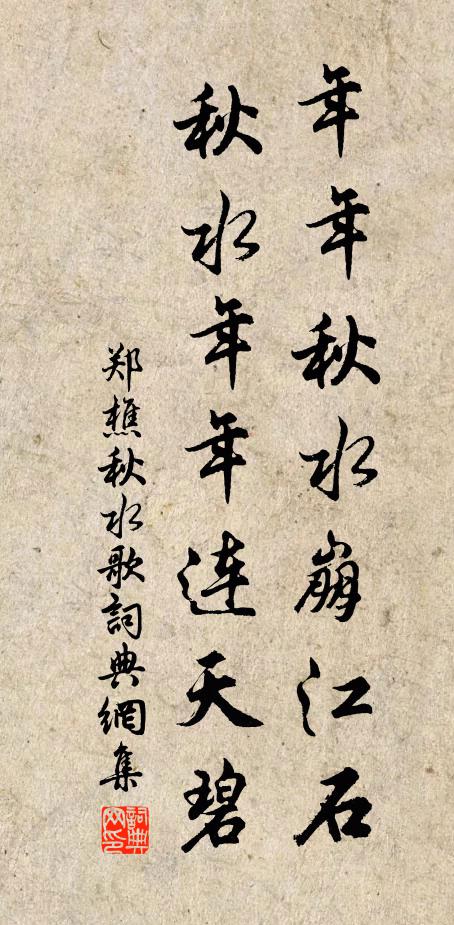 年年秋水崩江石
秋水年年连天碧
郑樵秋水歌詞典網集
詞典
网印